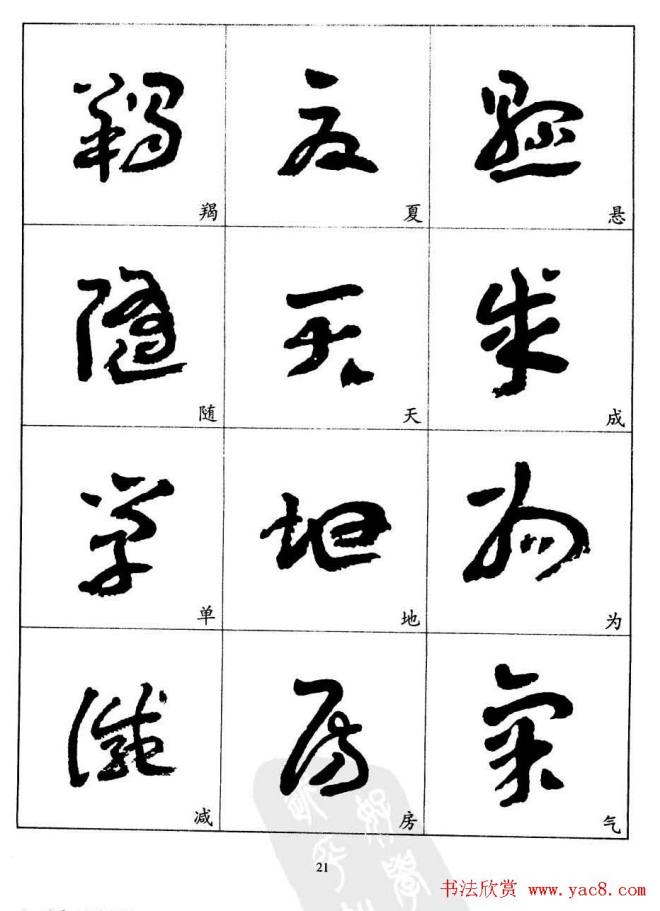 羯 夏 悬
随 天 成
单 地 为
减 房 气
21
书法欣赏 www.yac8.com